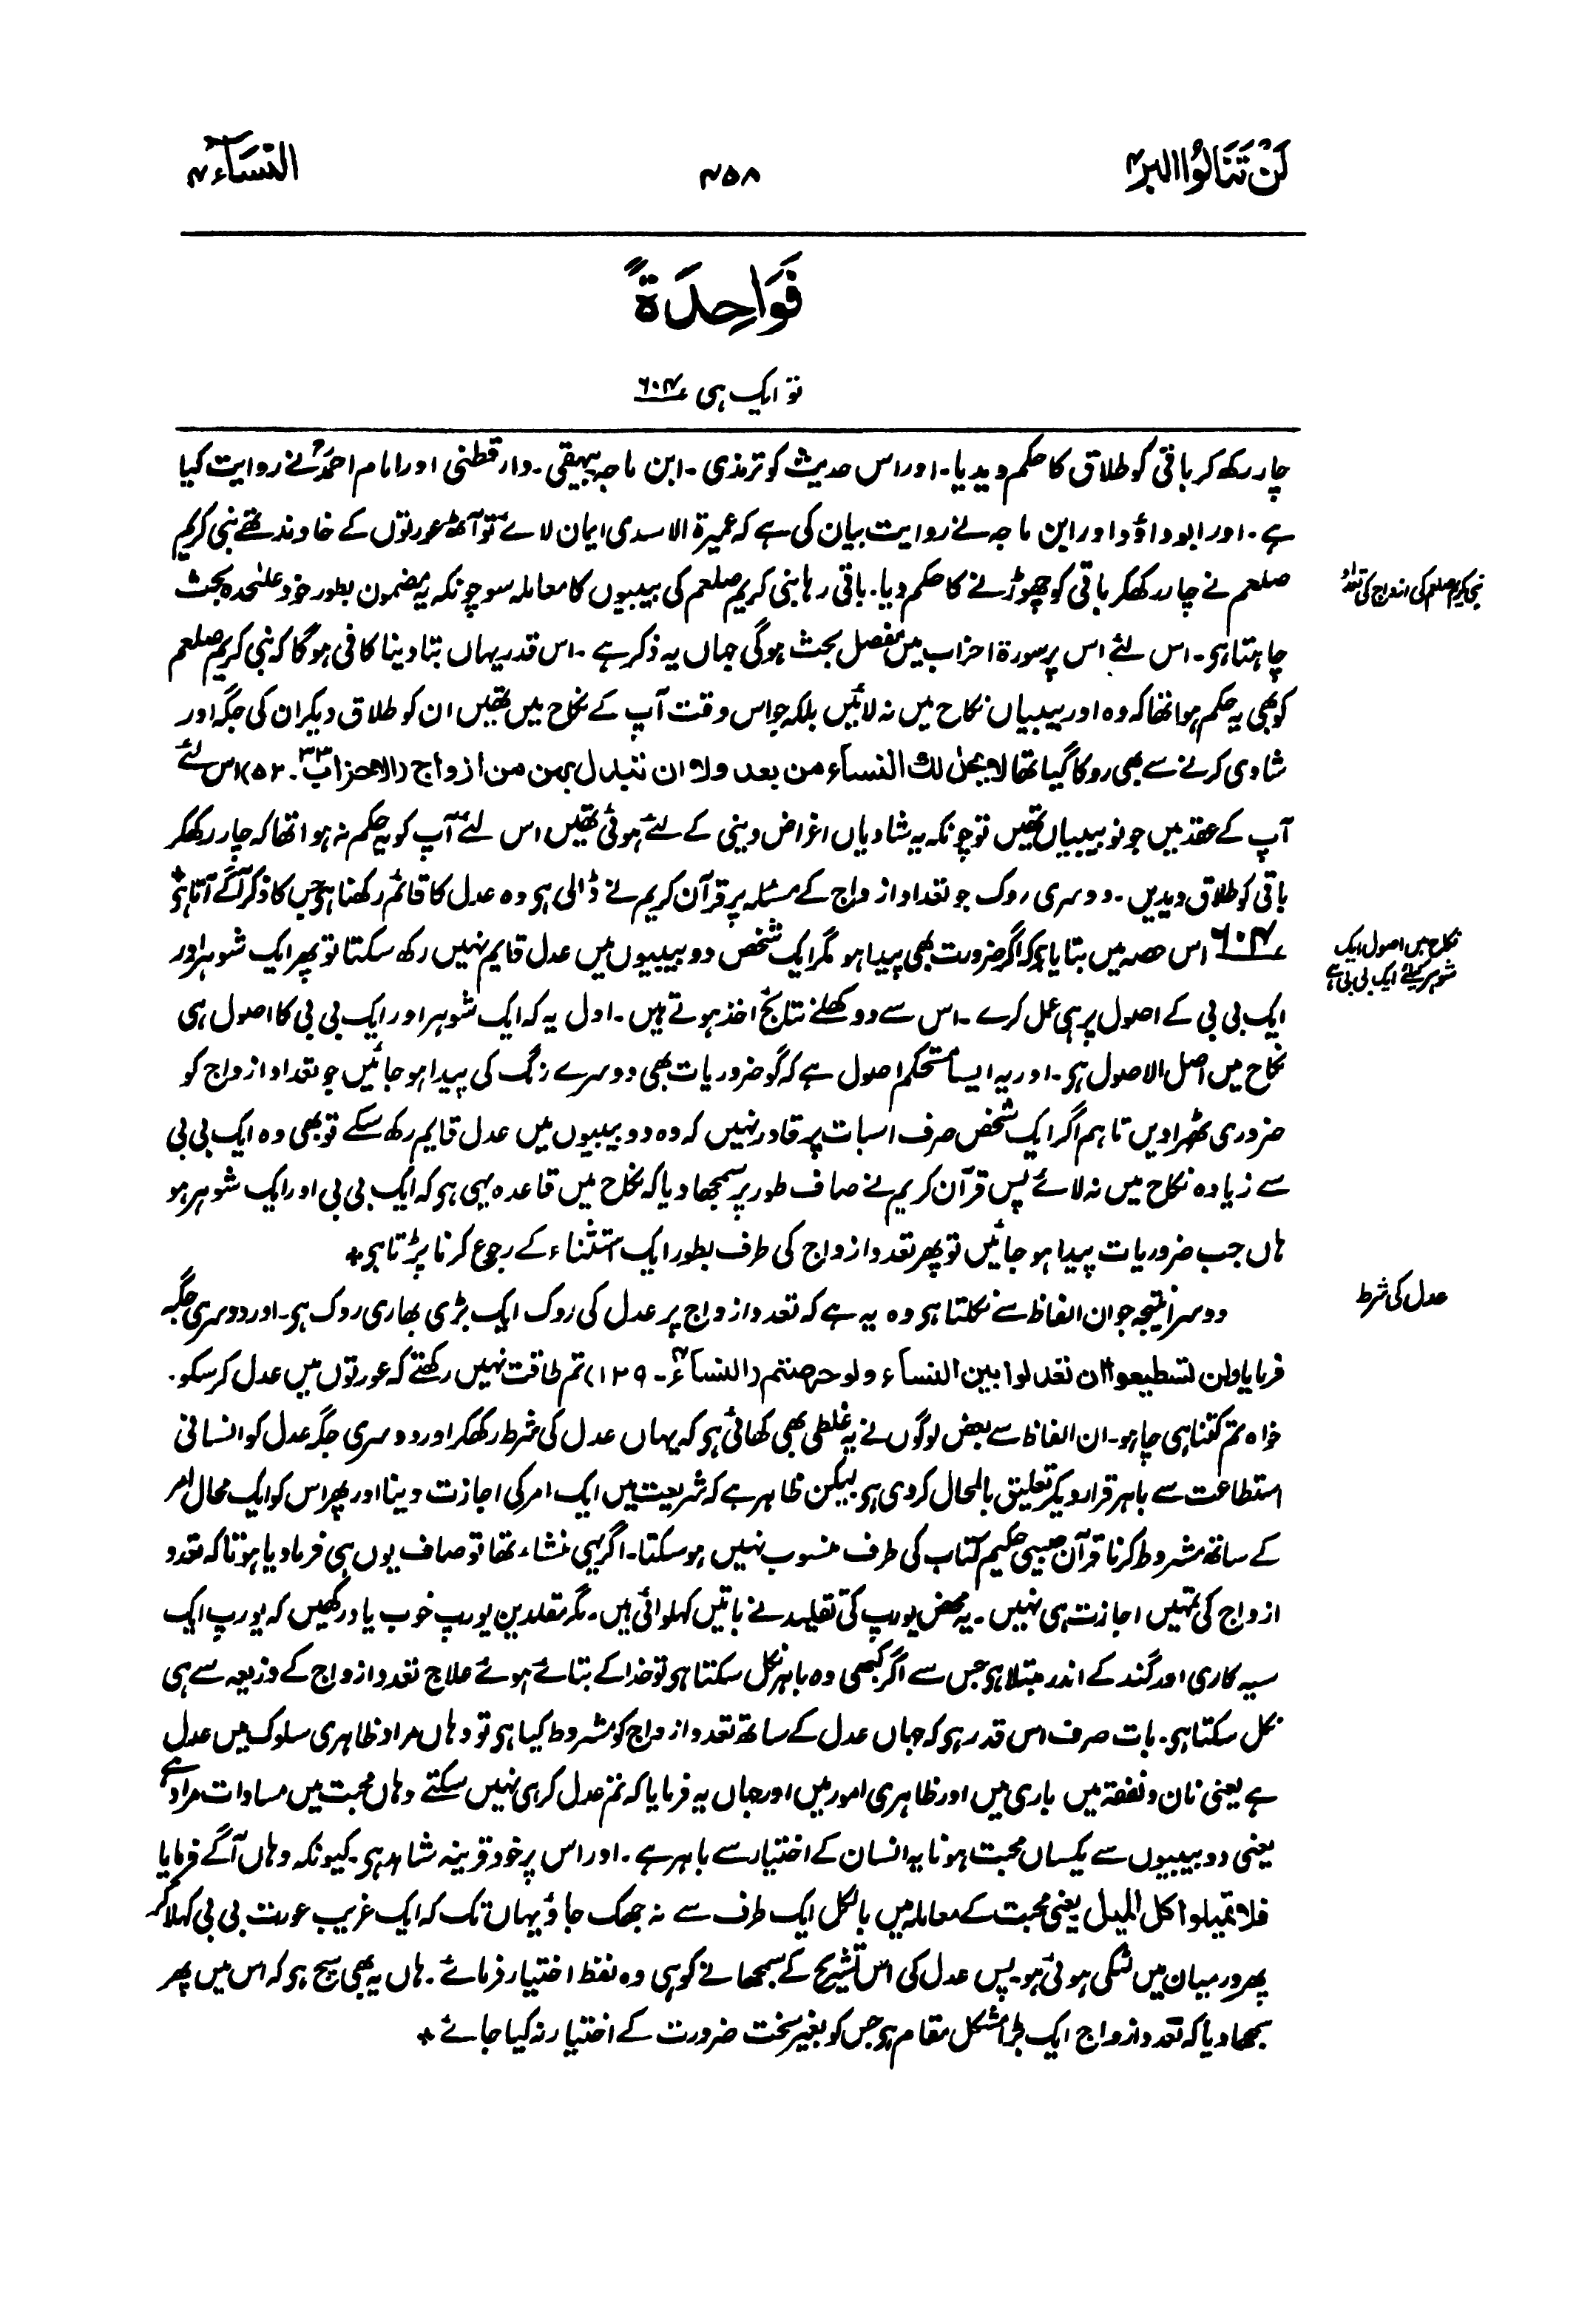 لَنْ تَنَالُوا البر ۴
۴۵۸
النِّسَآء ۴
فَوَاحِدَةً
تو ایک ہی ۶۰۴؎
چار رکھ کر باقی کو طلاق کا حکم دیدیا۔ اور اس حدیث کو ترمذی۔ ابن ماجہ بیہقی۔ دارقطنی اور امام احمدؒ نے روایت کیا
ہے۔ اور ابوداؤد اور ابن ماجہ نے روایت بیان کی ہے کہ عمیرۃ الاسدی ایمان لائے تو آٹھ عورتوں کے خاوند تھے نبی کریم
صلعم نے چار رکھکر باقی کو چھوڑنے کا حکم دیا۔ باقی رہا نبی کریم صلعم کی بیبیوں کا معاملہ سو چونکہ یہ مضمون بطور خود علٰحدہ بحث
نبی کریم صلعم کی ازواج کی تعداد
چاہتا ہی۔ اس لئے اس پر سورۃ احزاب میں مفصل بحث ہوگی جہاں یہ ذکر ہے۔ اس قدر یہاں بتا دینا کافی ہو گا کہ نبی کریم صلعم
کو بھی یہ حکم ہوا تھا کہ وہ اور بیبیاں نکاح میں نہ لائیں بلکہ جو اس وقت آپ کے نکاح میں تھیں ان کو طلاق دیکر ان کی جگہ اور
شادی کرنے سے بھی روکا گیا تھا لا یحل لک النساء من بعد ولا ان تبدل بہن من ازواج (الاحزاب ۳۳۔ ۵۲) اس لئے
آپ کے عقد میں جو نو بیبیاں تھیں تو چونکہ یہ شادیاں اغراض دینی کے لئے ہوئی تھیں اس لئے آپ کو یہ حکم نہ ہوا تھا کہ چار رکھکر
باقی کو طلاق دیدیں۔ دوسری روک جو تعداد ازواج کے مسئلہ پر قرآن کریم نے ڈالی ہی وہ عدل کا قائم رکھنا ہی جس کا ذکر آگے آتا ہی*
۶۰۴؎ اس حصہ میں بتایا ہی کہ اگر ضرورت بھی پیدا ہو مگر ایک شخص دو بیبیوں میں عدل قایم نہیں رکھ سکتا تو پھر ایک شوہر اور
نکاح میں اصول ایک
شوہر کیلئے ایک بی بی ہے
ایک بی بی کے اصول پر ہی عمل کرے۔ اس سے دو کھلے نتائج اخذ ہوتے ہیں۔ اول یہ کہ ایک شوہر اور ایک بی بی کا اصول ہی
نکاح میں اصل الاصول ہی۔ اور یہ ایسا مستحکم اصول ہے کہ گو ضروریات بھی دوسرے رنگ کی پیدا ہو جائیں جو تعداد ازواج کو
ضروری ٹھہرا دیں تاہم اگر ایک شخص صرف اسبات پر قادر نہیں کہ وہ دو بیبیوں میں عدل قایم رکھ سکے تو بھی وہ ایک بی بی
سے زیادہ نکاح میں نہ لائے پس قرآن کریم نے صاف طور پر سمجھا دیا کہ نکاح میں قاعدہ یہی ہی کہ ایک بی بی اور ایک شوہر ہو
ہاں جب ضروریات پیدا ہو جائیں تو پھر تعدد ازواج کی طرف بطور ایک استثناء کے رجوع کرنا پڑتا ہی*
دوسرا نتیجہ جو ان الفاظ سے نکلتا ہی وہ یہ ہے کہ تعدد ازواج پر عدل کی روک ایک بڑی بھاری روک ہی۔ اور دوسری جگہ
عدل کی شرط
فرمایا ولن تستطیعوا ان تعدلوا بین النساء ولو حرصتم (النساء ۴۔ ۱۲۹) تم طاقت نہیں رکھتے کہ عورتوں میں عدل کر سکو۔
خواہ تم کتنا ہی چاہو۔ ان الفاظ سے بعض لوگوں نے یہ غلطی بھی کھائی ہی کہ یہاں عدل کی شرط رکھکر اور دوسری جگہ عدل کو انسانی
استطاعت سے باہر قرار دیکر تعلیق بالمحال کر دی ہی لیکن ظاہر ہے کہ شریعت میں ایک امر کی اجازت دینا اور پھر اس کو ایک محال امر
کے ساتھ مشروط کرنا قرآن جیسی حکیم کتاب کی طرف منسوب نہیں ہو سکتا۔ اگر یہی منشاء تھا تو صاف یوں ہی فرما دیا ہوتا کہ تعدد
ازواج کی تمہیں اجازت ہی نہیں۔ یہ محض یورپ کی تقلید نے باتیں کہلوائی ہیں۔ مگر مقلدین یورپ خوب یاد رکھیں کہ یورپ ایک
سیہ کاری اور گند کے اندر مبتلا ہی جس سے اگر کبھی وہ باہر نکل سکتا ہی تو خدا کے بتائے ہوئے علاج تعدد ازواج کے ذریعہ سے ہی
نکل سکتا ہی۔ بات صرف اس قدر ہی کہ جہاں عدل کے ساتھ تعدد ازواج کو مشروط کیا ہی تو وہاں مراد ظاہری سلوک میں عدل
ہے یعنی نان و نفقہ میں باری میں اور ظاہری امور میں اور جہاں یہ فرمایا کہ تم عدل کر ہی نہیں سکتے وہاں محبت میں مساوات مراد ہے
یعنی دو بیبیوں سے یکساں محبت ہونا یہ انسان کے اختیار سے باہر ہے۔ اور اس پر خود قرینہ شاہد ہی۔ کیونکہ وہاں آگے فرمایا
فلا تمیلوا کل المیل یعنی محبت کے معاملہ میں بالکل ایک طرف سے نہ جھک جاؤ یہاں تک کہ ایک غریب عورت بی بی کہلا کر
پھر درمیان میں لٹکی ہوئی ہو۔ پس عدل کی اس تشریح کے سمجھانے کو ہی وہ لفظ اختیار فرمائے۔ ہاں یہ بھی سچ ہی کہ اس میں پھر
سمجھا دیا کہ تعدد ازواج ایک بڑا مشکل مقام ہی جس کو بغیر سخت ضرورت کے اختیار نہ کیا جائے *